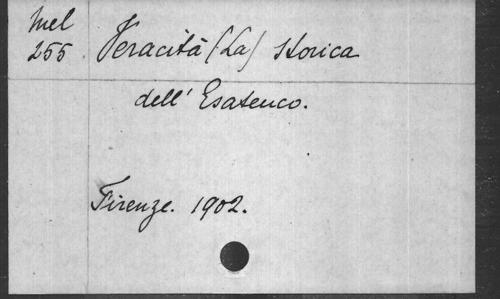 Mel
255
Veracità (La) storica
dell' Esateuco.
Firenze. 1902.